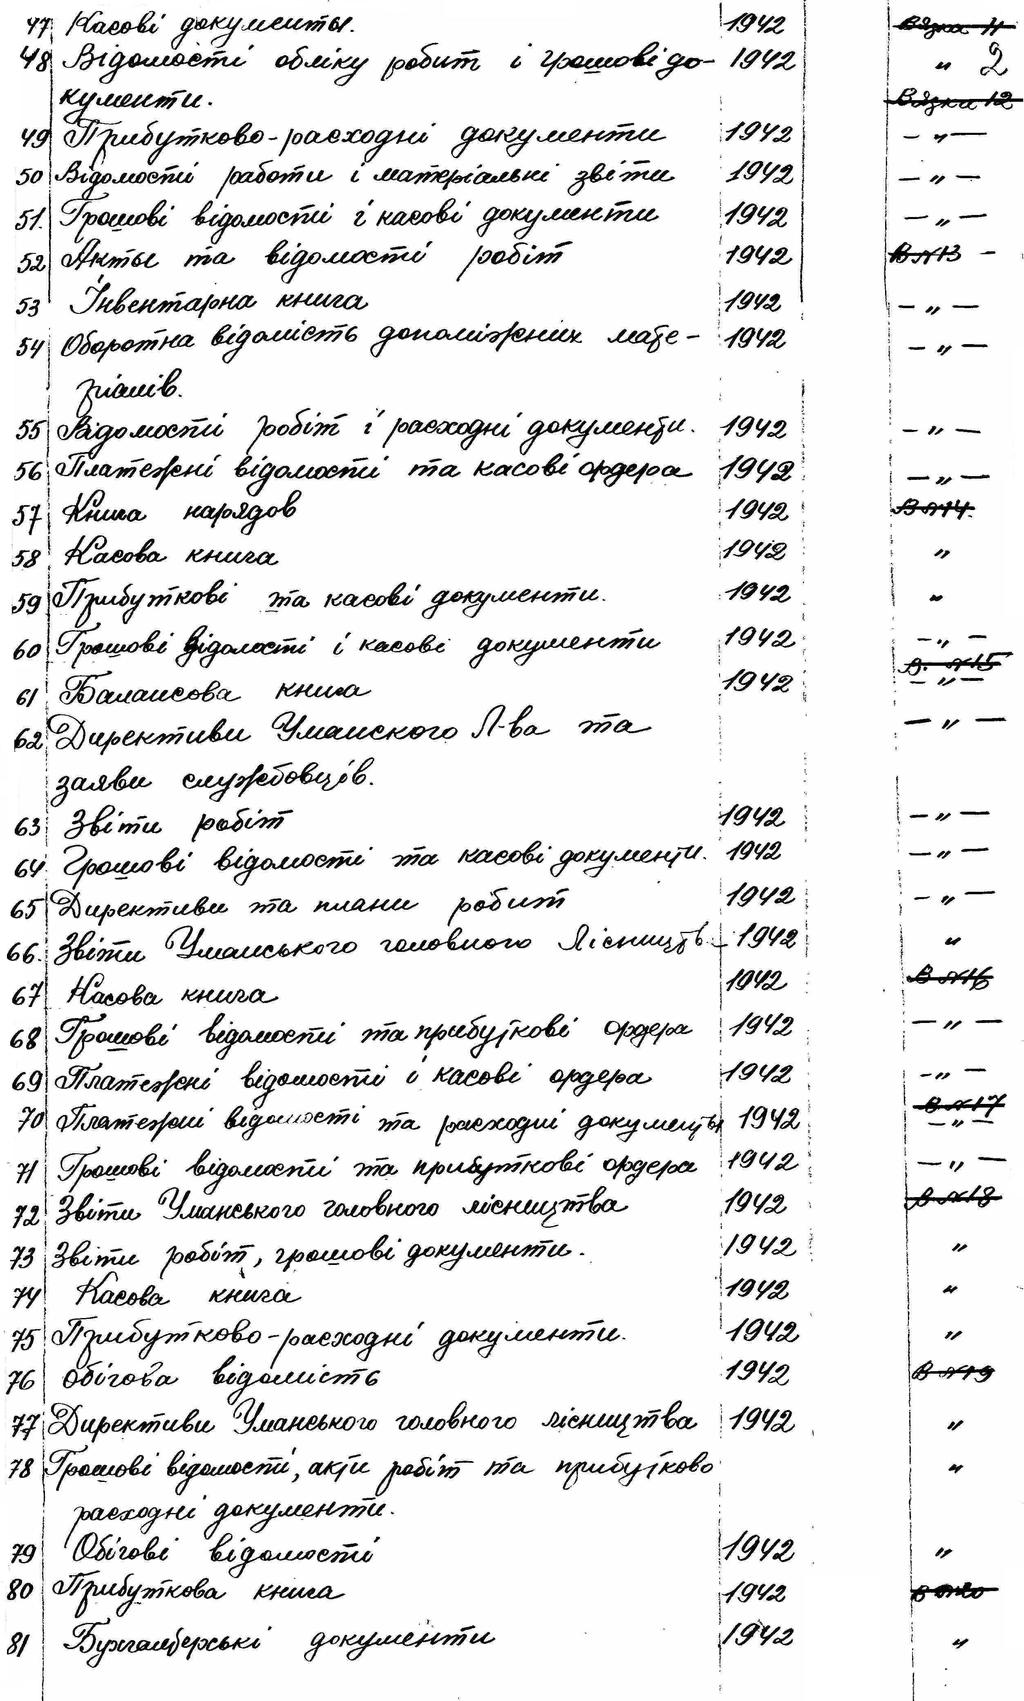 47 Касові документы. 1942 Вязка 11
48 Відомості обліку робит і грошові до- 1942 " 2
кументи. Вязка 12
49 Прибутково-расходні документи 1942 - " -
50 Відомости работи і маткріальні звіти 1942 - " -
51. Грошові відомости і касові документи 1942 - " -
52 Акты та відомости робіт 1942 В №13 -
53 Інвентарна книга 1942 - " -
54 Оборотна відомість допоміжних мате- 1942 - " -
ріалів.
55 Відомости робіт і расходні документи. 1942 - " -
56 Платежні відомості та касові ордера 1942 - " -
57 Книга нарядов 1942 В №14.
58 Касова книга 1942 "
59 Прибуткові та касові документи. 1942 "
60 Грошові відомості і касові документи 1942 - " -
В. №15
61 Балансова книга 1942 - " -
62 Директиви Уманского Л-ва та - " -
заяви службовців.
63 Звіти робіт 1942 - " -
64 Грошові відомості та касові документи. 1942 - " -
65 Директиви та плани робит 1942 - " -
66. Звіти Уманського головного Лісництв. 1942 "
67 Касова книга 1942 В №16
68 Грошові відомості та прибуткові ордера 1942 - " -
69 Платежні відомості і касові ордера 1942 - " -
В №17
70 Платежні відомості та расходні документы 1942 - " -
71 Грошові відомості та прибуткові ордера 1942 - " -
72 Звіти Уманського головного лісництва 1942 В №18
73 Звіти робіт, грошові документи. 1942 "
74 Касова книга 1942 "
75 Прибутково-расходні документи. 1942 "
76 Обігова відомість 1942 В №19
77 Директиви Уманського головного лісництва 1942 "
78 Грошові відомості, акти робіт та прибутково "
расходні документи.
79 Обігові відомості 1942 "
80 Прибуткова книга 1942 В №20
81 Бухгалберські документи 1942 "